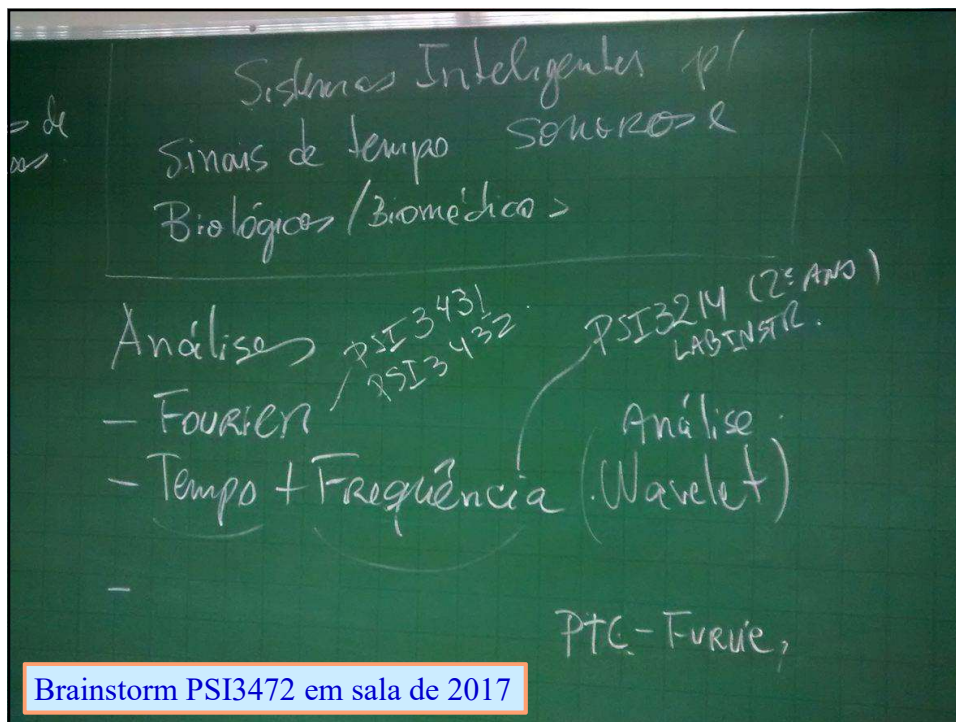 Sistemas Inteligentes p/
Sinais de tempo SONOROS e
Biológicos/Biomédicos
de
Análises
PSI3431
PSI3432
PSI3214 (2º ANO)
LABINSTR.
- FOURIER
- Tempo + Frequência
Análise
(Wavelet)
-
PTC - FURUIE,
Brainstorm PSI3472 em sala de 2017